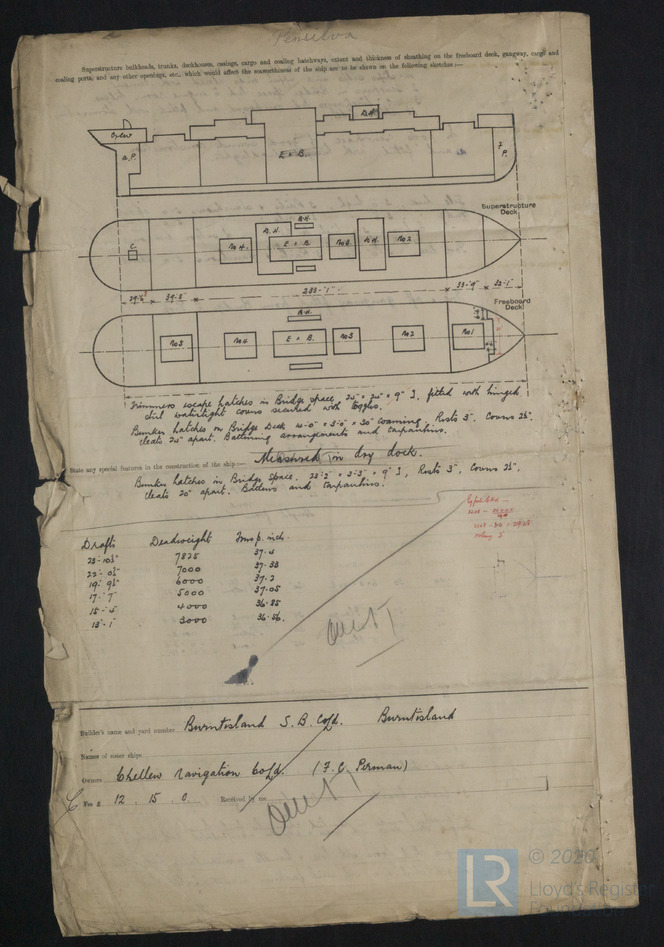 Penselva
Superstructure bulkheads, trunks, deckhouses, casings, cargo and coaling hatchways, extent and thickness of sheathing on the freeboard deck, gangway, cargo and
coaling ports, and any other openings, etc., which would affect the seaworthiness of the ship are to be shown on the following sketches :—
Crew
A.P.
E & B.
D.H.
F.P.
Superstructure
Deck
C
No 4.
D.H.
E & B.
D.H.
No 3
D.H.
No 2
39'-3"
233'-1"
33'-9"
32'-1"
Freeboard
Deck
No 5
No 4
D.H.
E & B.
No 3
No 2
No 1
Trimmers escape hatches in Bridge space, 25" × 25" × 9" I, fitted with hinged
steel watertight covers secured with toggles.
Bunker hatches on Bridge Deck 4'-0" × 3'-0" × 30" coaming, Rests 3", Covers 2½",
cleats 24" apart. Battening arrangements and tarpaulins.
Measured in dry dock.
State any special features in the construction of the ship :—
Bunker hatches in Bridge space, 23'-2" × 3'-3" × 9" I, Rests 3", Covers 2½",
cleats 20" apart. Battens and tarpaulins.
Drafts Deadweight Tons p. inch.
23'-10½" 7825 37.4
22'-0½" 7000 37.33
19'-9½" 6000 37.2
17'-7" 5000 37.05
15'-5" 4000 36.85
13'-1" 3000 36.56.
Builder's name and yard number Burntisland S.B. Co Ld. Burntisland
Names of sister ships
Owners Chellew Navigation Co Ld. (F. C. Perman)
Fee £ 12 . 15 . 0 Received by me
© 2020
LR
Lloyd's Register
Foundation